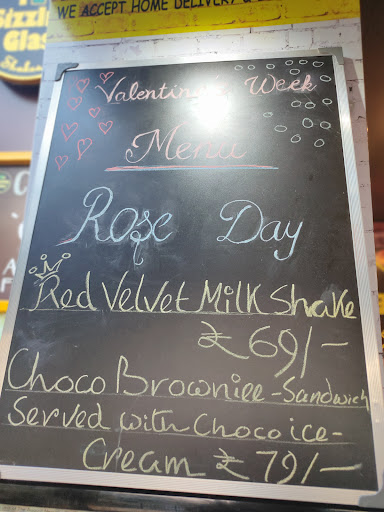 WE ACCEPT HOME DELIVERY &
Sizzlin
Glas
Valentine's Week
Menu
Rose Day
Red Velvet Milk Shake
₹ 69/-
Choco Browniee - Sandwich
Served with Choco ice-
Cream ₹ 79/-